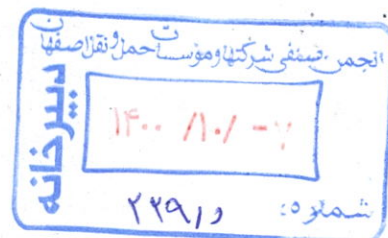 انجمن صنفی شرکتها و مؤسسات حمل و نقل اصفهان
دبیرخانه
۱۴۰۰ /۱۰/ -۷
شماره: ۲۳۹/و